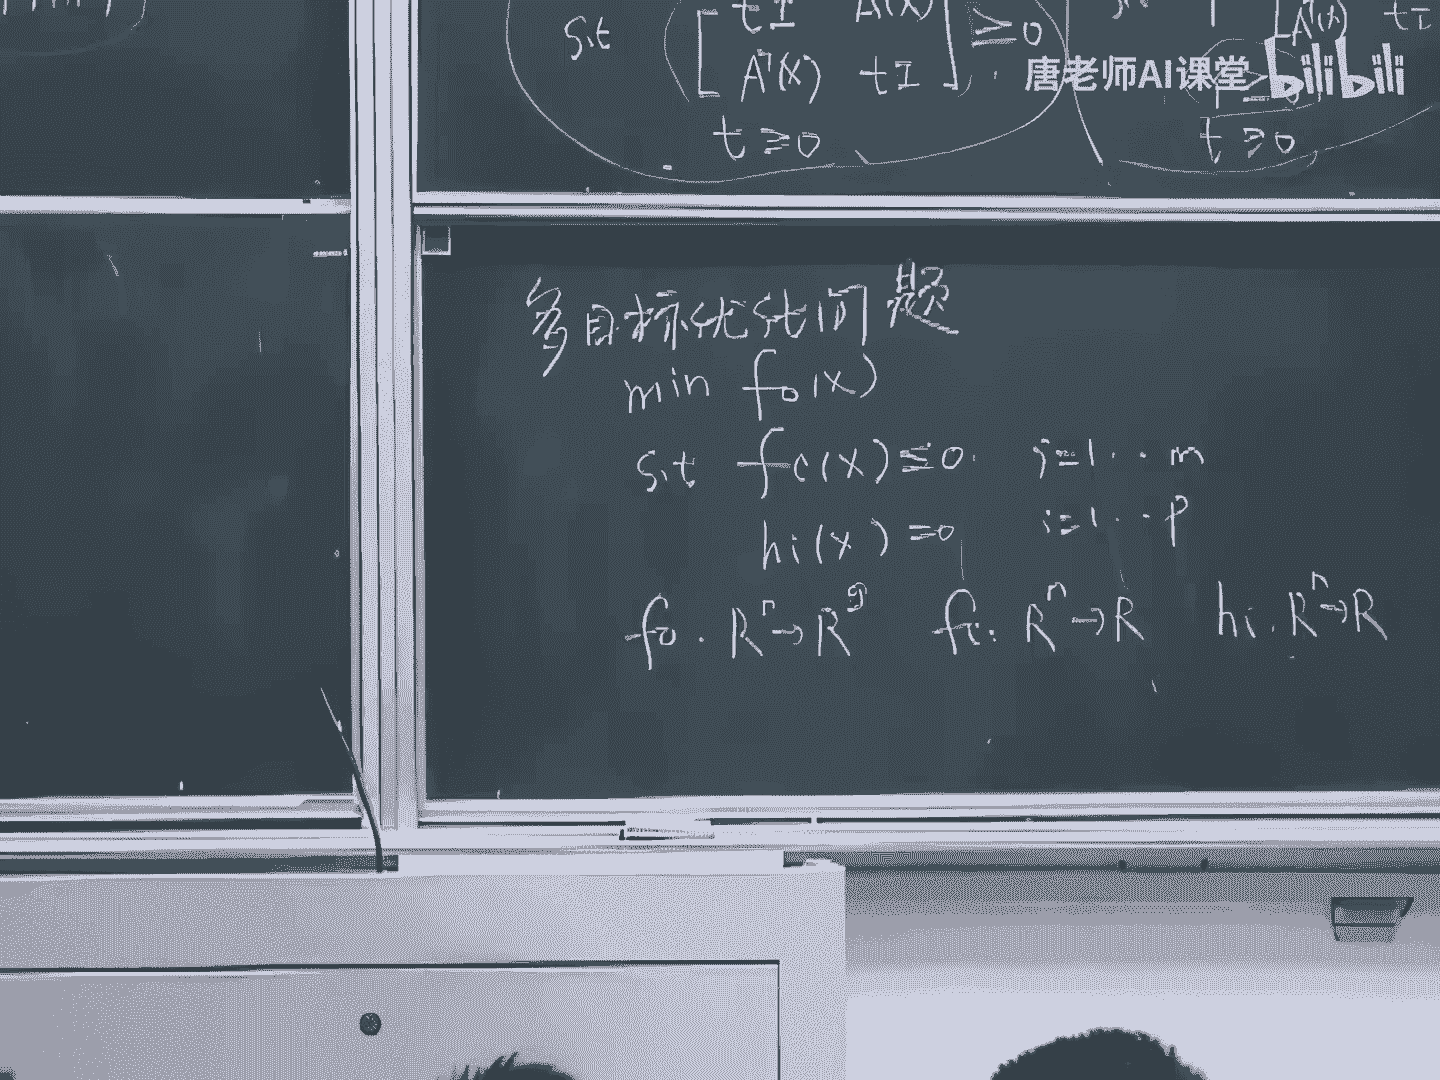 s.t [tI A(X)
A^T(X) tI] ≥0
t ≥0
A^T(X) tI
t ≥0
唐老师AI课堂 bilibili
多目标优化问题
min f₀(x)
s.t fi(x)≤0. i=1 ·· m
hi(x)=0 i=1 ·· p
f₀. Rⁿ→R^q fi: Rⁿ→R hi. Rⁿ→R